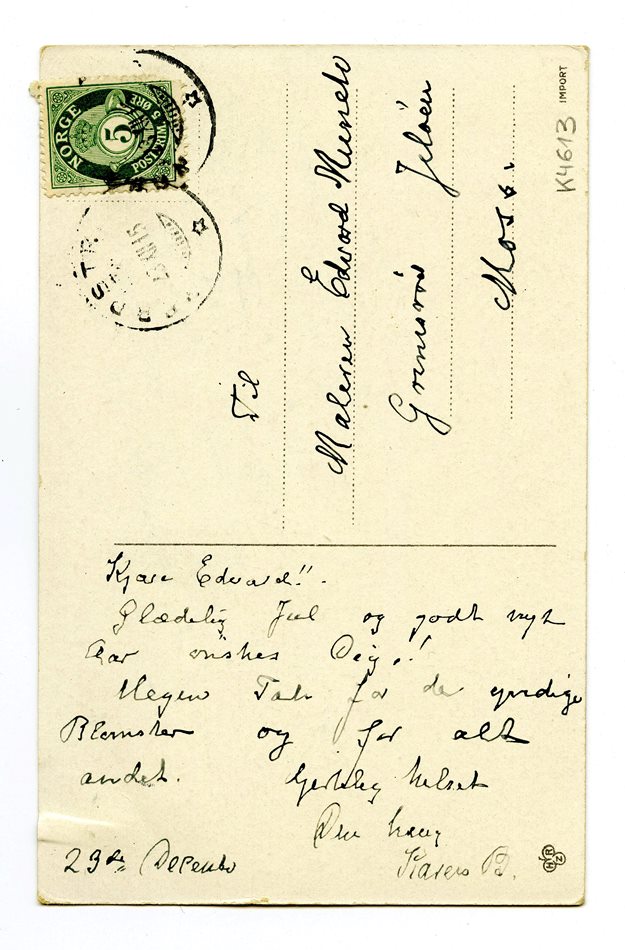 NORGE
5
5 ØRE
POSTFRIM.
15
Til
Maleren Edvard Munch
Grimsrød Jeløen
Moss.
IMPORT
K4613
Kjære Edvard!!.
Glædelig Jul og godt nyt
Aar ønskes Dig,!
Megen Tak for de yndige
Blomster og for alt
andet. Hjertelig hilset
Din
Karen B.
23de December